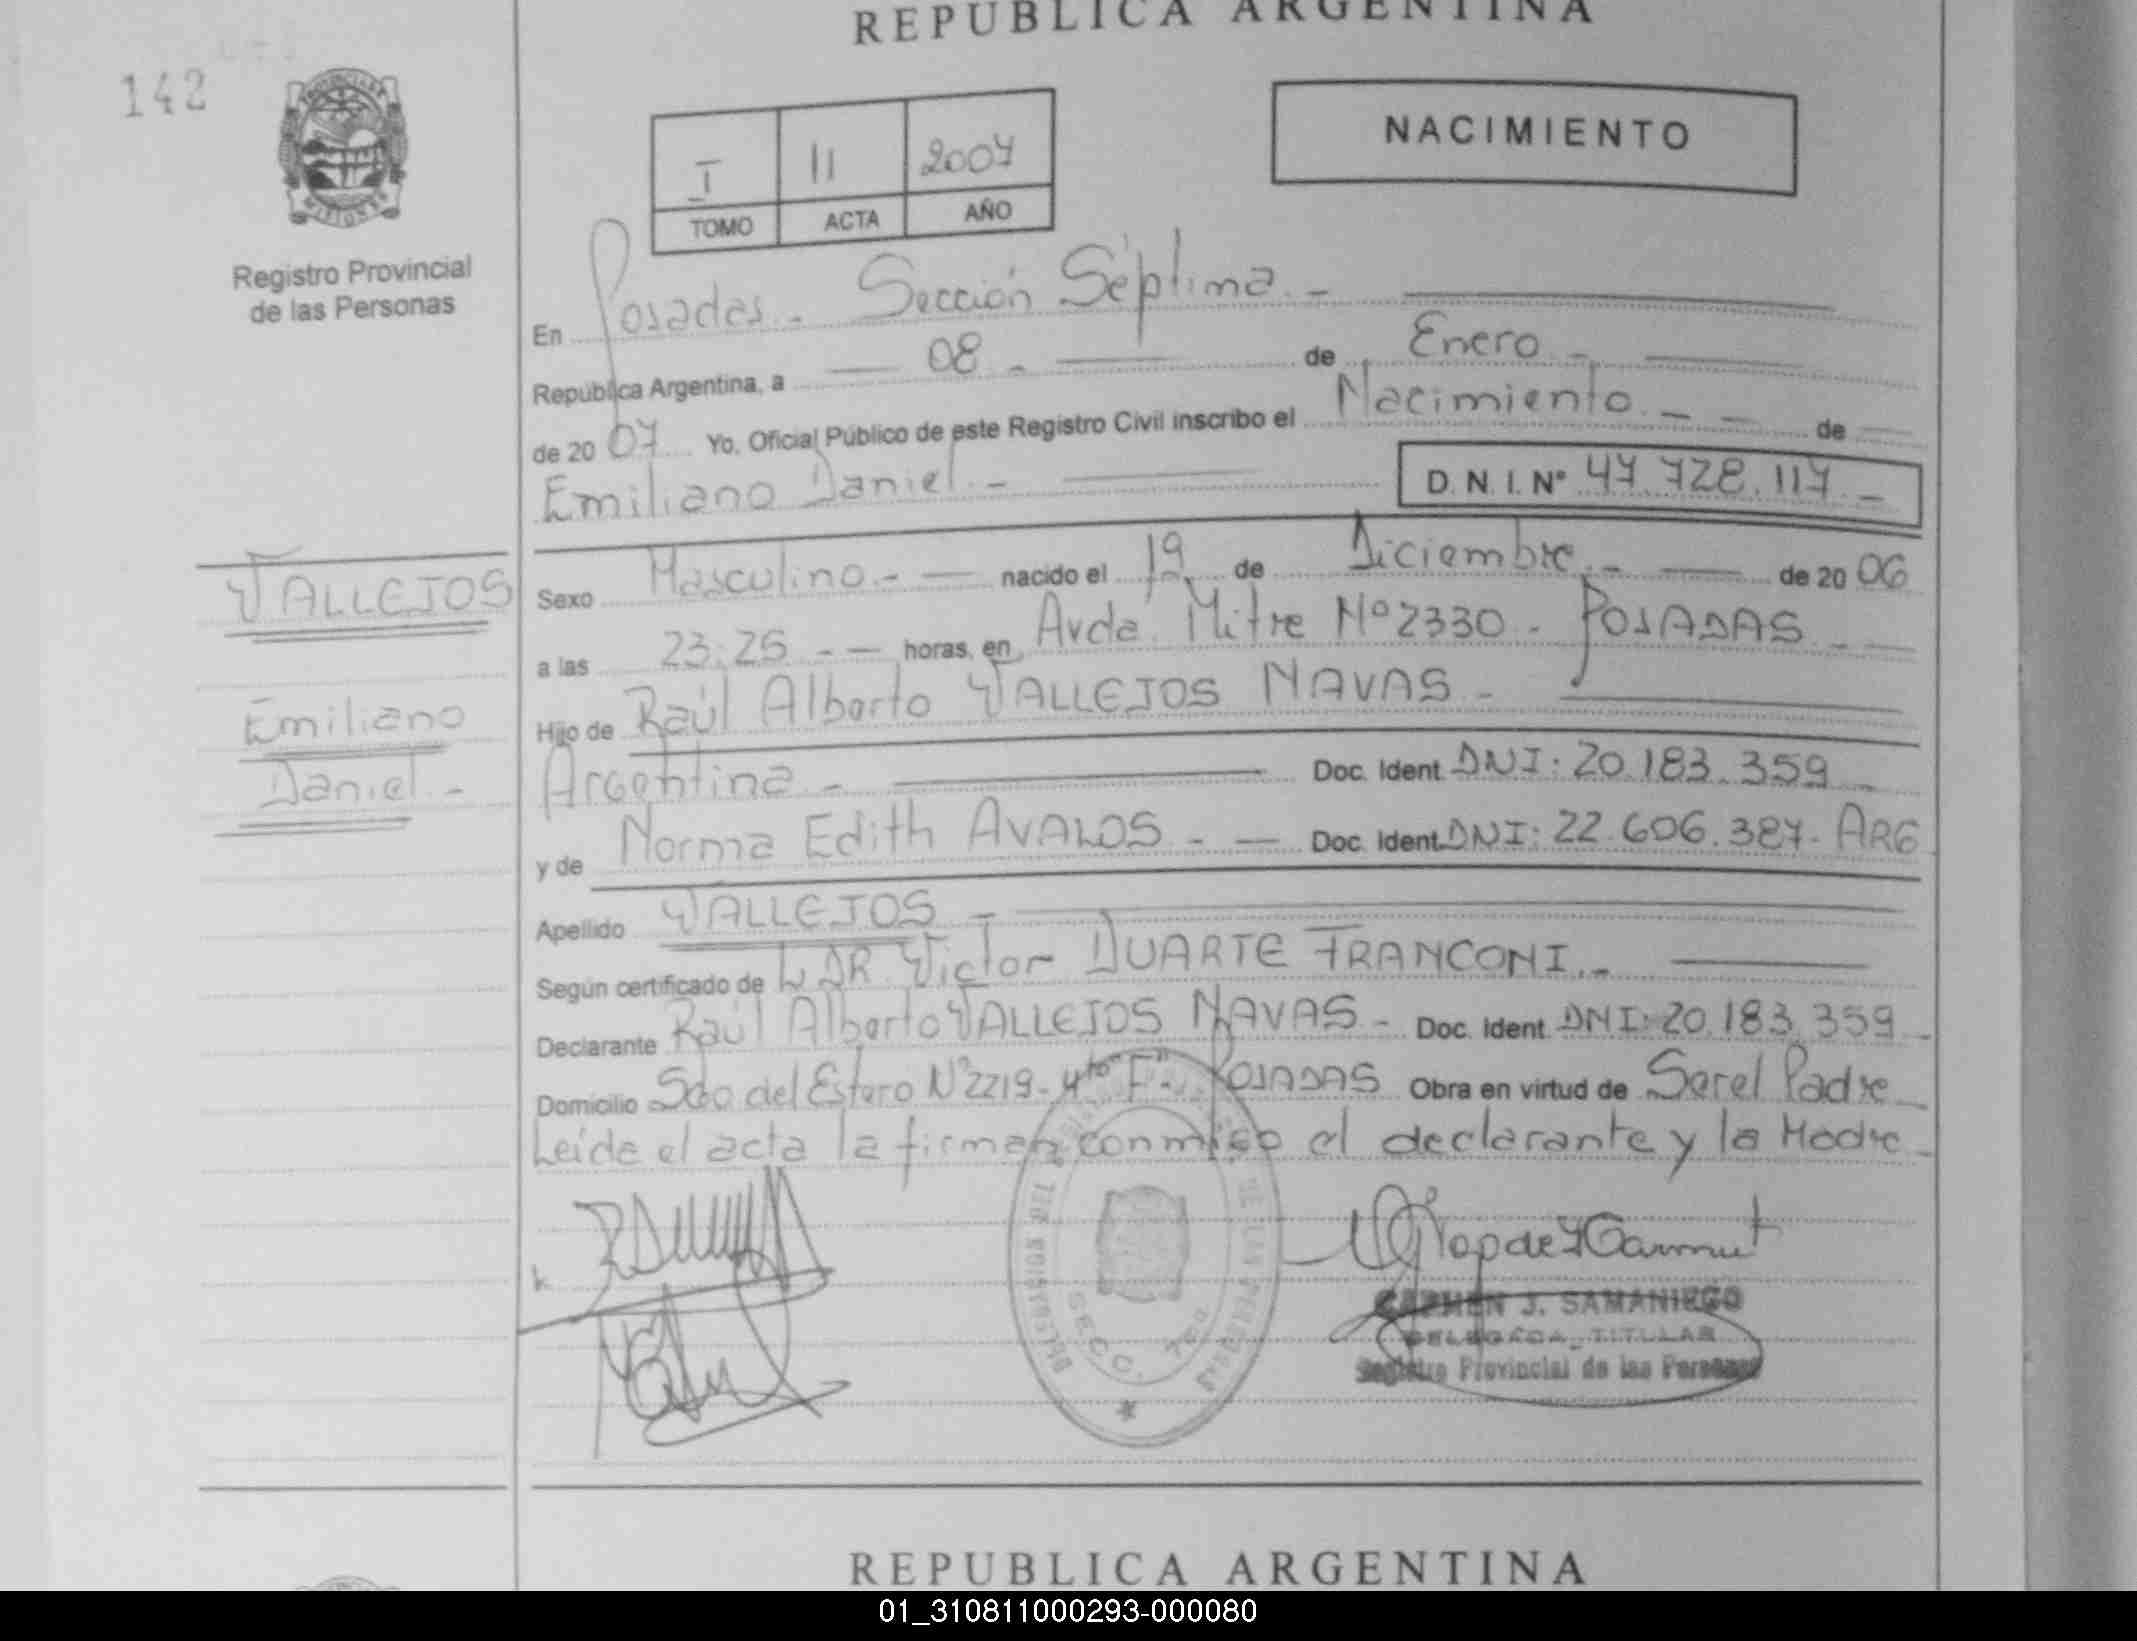 REPUBLICA ARGENTINA
142
I 11 2007
TOMO ACTA AÑO
NACIMIENTO
MISIONES
Registro Provincial
de las Personas
En Posadas.- Sección Séptima.-
República Argentina, a 08.- de Enero.-
de 2007 Yo, Oficial Público de este Registro Civil inscribo el Nacimiento.- - de
Emiliano Daniel.-
D. N. I. Nº 47.728.117.-
VALLEJOS
Emiliano
Daniel.-
Sexo Masculino.- nacido el 19 de Diciembre.- de 2006
a las 23:25 - - horas, en Avda. Mitre Nº2330 - POSADAS.-
Hijo de Raúl Alberto VALLEJOS NAVAS -
Argentina.- Doc. Ident. DNI: 20.183.359
y de Norma Edith AVALOS.- - Doc. Ident. DNI: 22.606.387. ARG
Apellido VALLEJOS -
Según certificado de DR. Victor DUARTE FRANCONI.-
Declarante Raúl Alberto VALLEJOS NAVAS - Doc. Ident. DNI: 20.183.359
Domicilio Sdo del Estero Nº2219- 4to "F"- POSADAS Obra en virtud de Ser el Padre
Leída el acta la firman conmigo el declarante y la Madre
SECC. 7ma
CARMEN J. SAMANIEGO
DELEGADA TITULAR
Registro Provincial de las Personas
REPUBLICA ARGENTINA
01_310811000293-000080